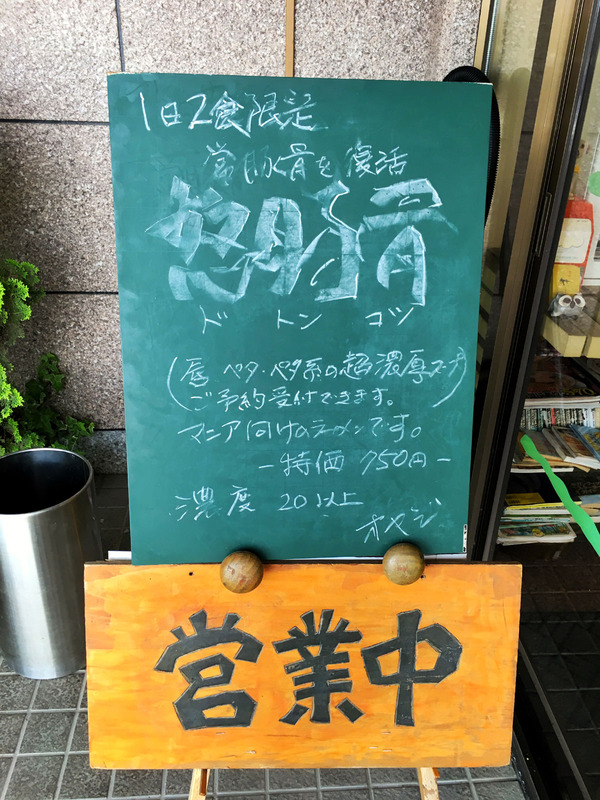 1日2食限定
営豚骨を復活
怒豚骨
ド トン コツ
(唇ペタ・ペタ系の超濃厚スープ)
ご予約受付できます。
マニア向けのラーメンです。
-特価 750円-
濃度 20以上
オヤジ
営業中